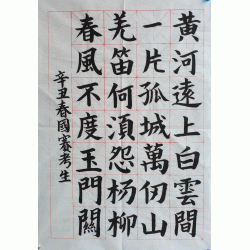 黃河遠上白雲間
一片孤城萬仞山
羌笛何須怨楊柳
春風不度玉門關
辛丑春國賽考生